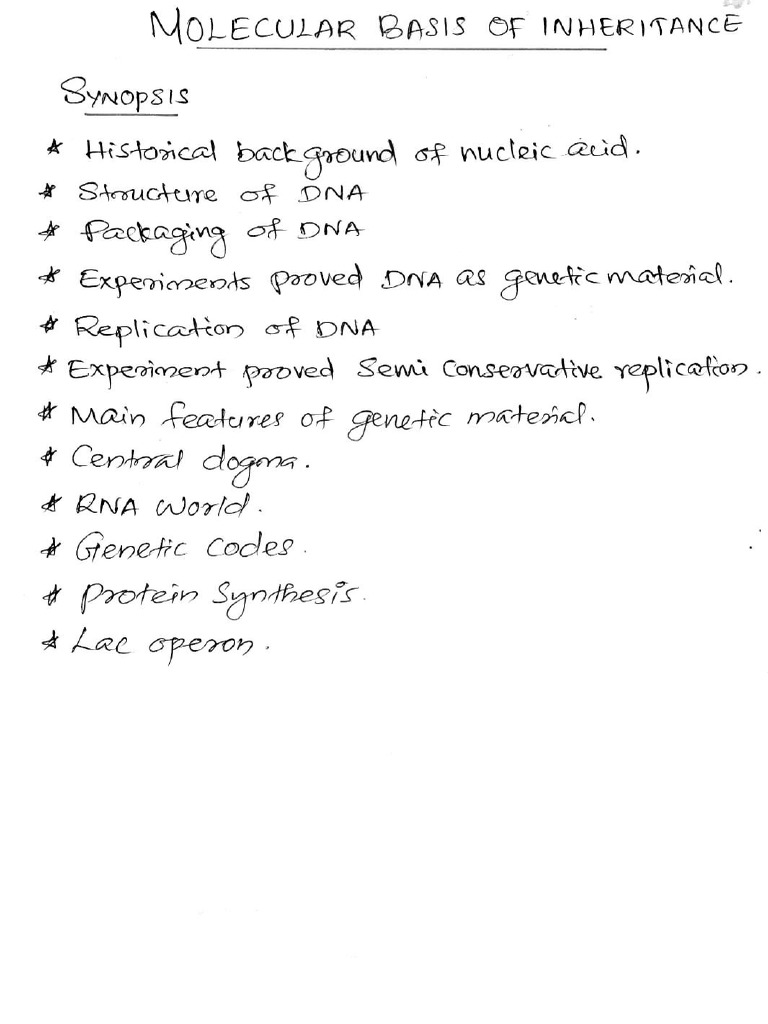 MOLECULAR BASIS OF INHERITANCE
SYNOPSIS
* Historical background of nucleic acid.
* Structure of DNA
* Packaging of DNA
* Experiments proved DNA as genetic material.
* Replication of DNA
* Experiment proved Semi Conservative replication.
* Main features of genetic material.
* Central dogma.
* RNA World.
* Genetic Codes.
* Protein Synthesis.
* Lac operon.